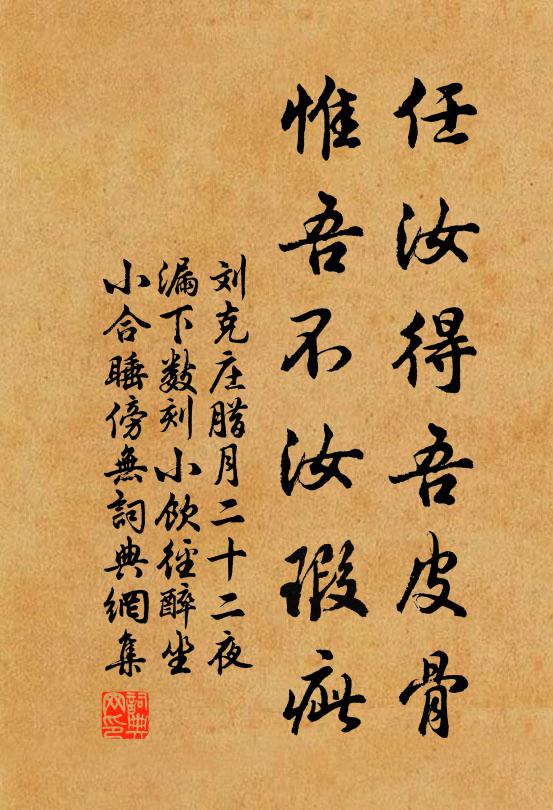 任汝得吾皮骨
惟吾不汝瑕疵
刘克庄腊月二十二夜
漏下数刻小饮径醉坐
小合睡傍無詞典網集
詞典网印